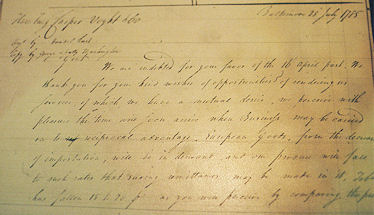 Hamburg Caspar Voght & Co Baltimore 25 July 1785
We are indebted for your favor of the 16 April past. We
thank you for your kind wishes of opportunities of rendering us
services of which we have a mutual desire, we perceive with
pleasure the time will soon arrive when Business may be carried
on to reciprocal advantage. European Goods, from the decrease
of importation, will be in demand and our produce will fall
to such rates that saving remittances may be made in it,
has fallen as you will perceive by comparing the